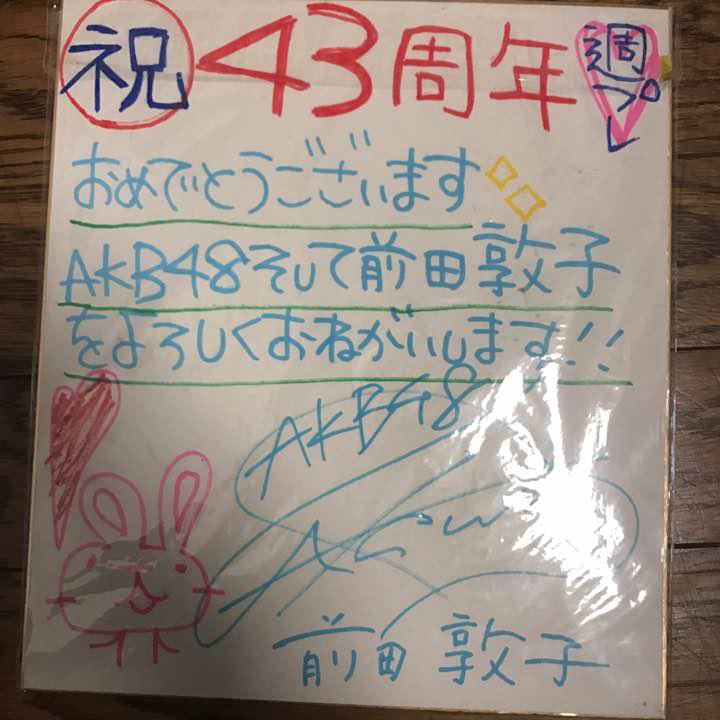 祝 43周年 週プレ
おめでとうございます
AKB48そして前田敦子
をよろしくおねがいします!!
AKB48
前田敦子